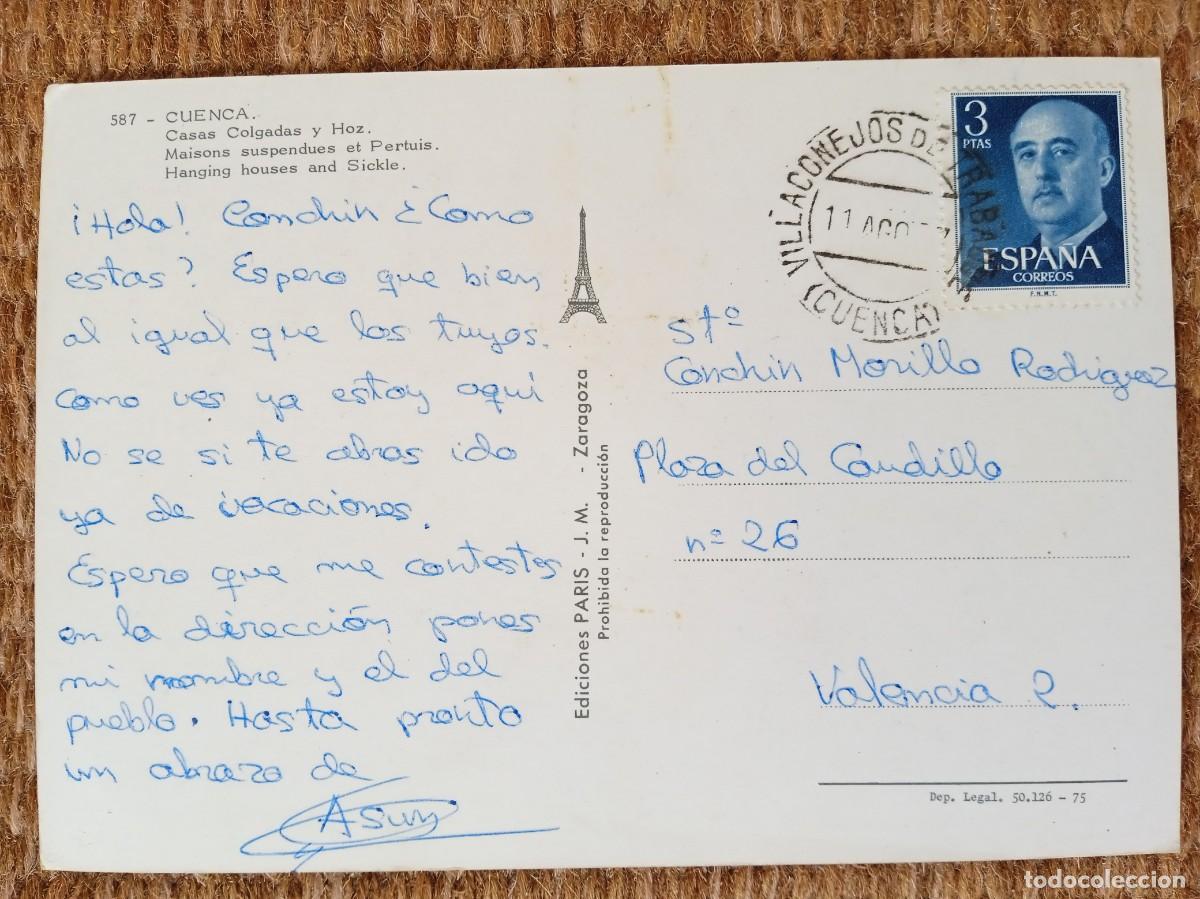 587 - CUENCA.
Casas Colgadas y Hoz.
Maisons suspendues et Pertuis.
Hanging houses and Sickle.
¡Hola! Conchin ¿Como
estas? Espero que bien
al igual que los tuyos.
Como ves ya estoy aquí
No se si te abras ido
ya de vacaciones.
Espero que me contestes
en la dirección pones
mi nombre y el del
pueblo. Hasta pronto
un abrazo de
Asun
Ediciones PARIS - J. M. - Zaragoza
Prohibida la reproducción
VILLACONEJOS DE TRABAQUE
11 AGO
(CUENCA)
3
PTAS
ESPAÑA
CORREOS
F.N.M.T.
Stº
Conchin Morillo Rodriguez
Plaza del Caudillo
nº 26
Valencia 2.
Dep. Legal. 50.126 - 75
todocoleccion